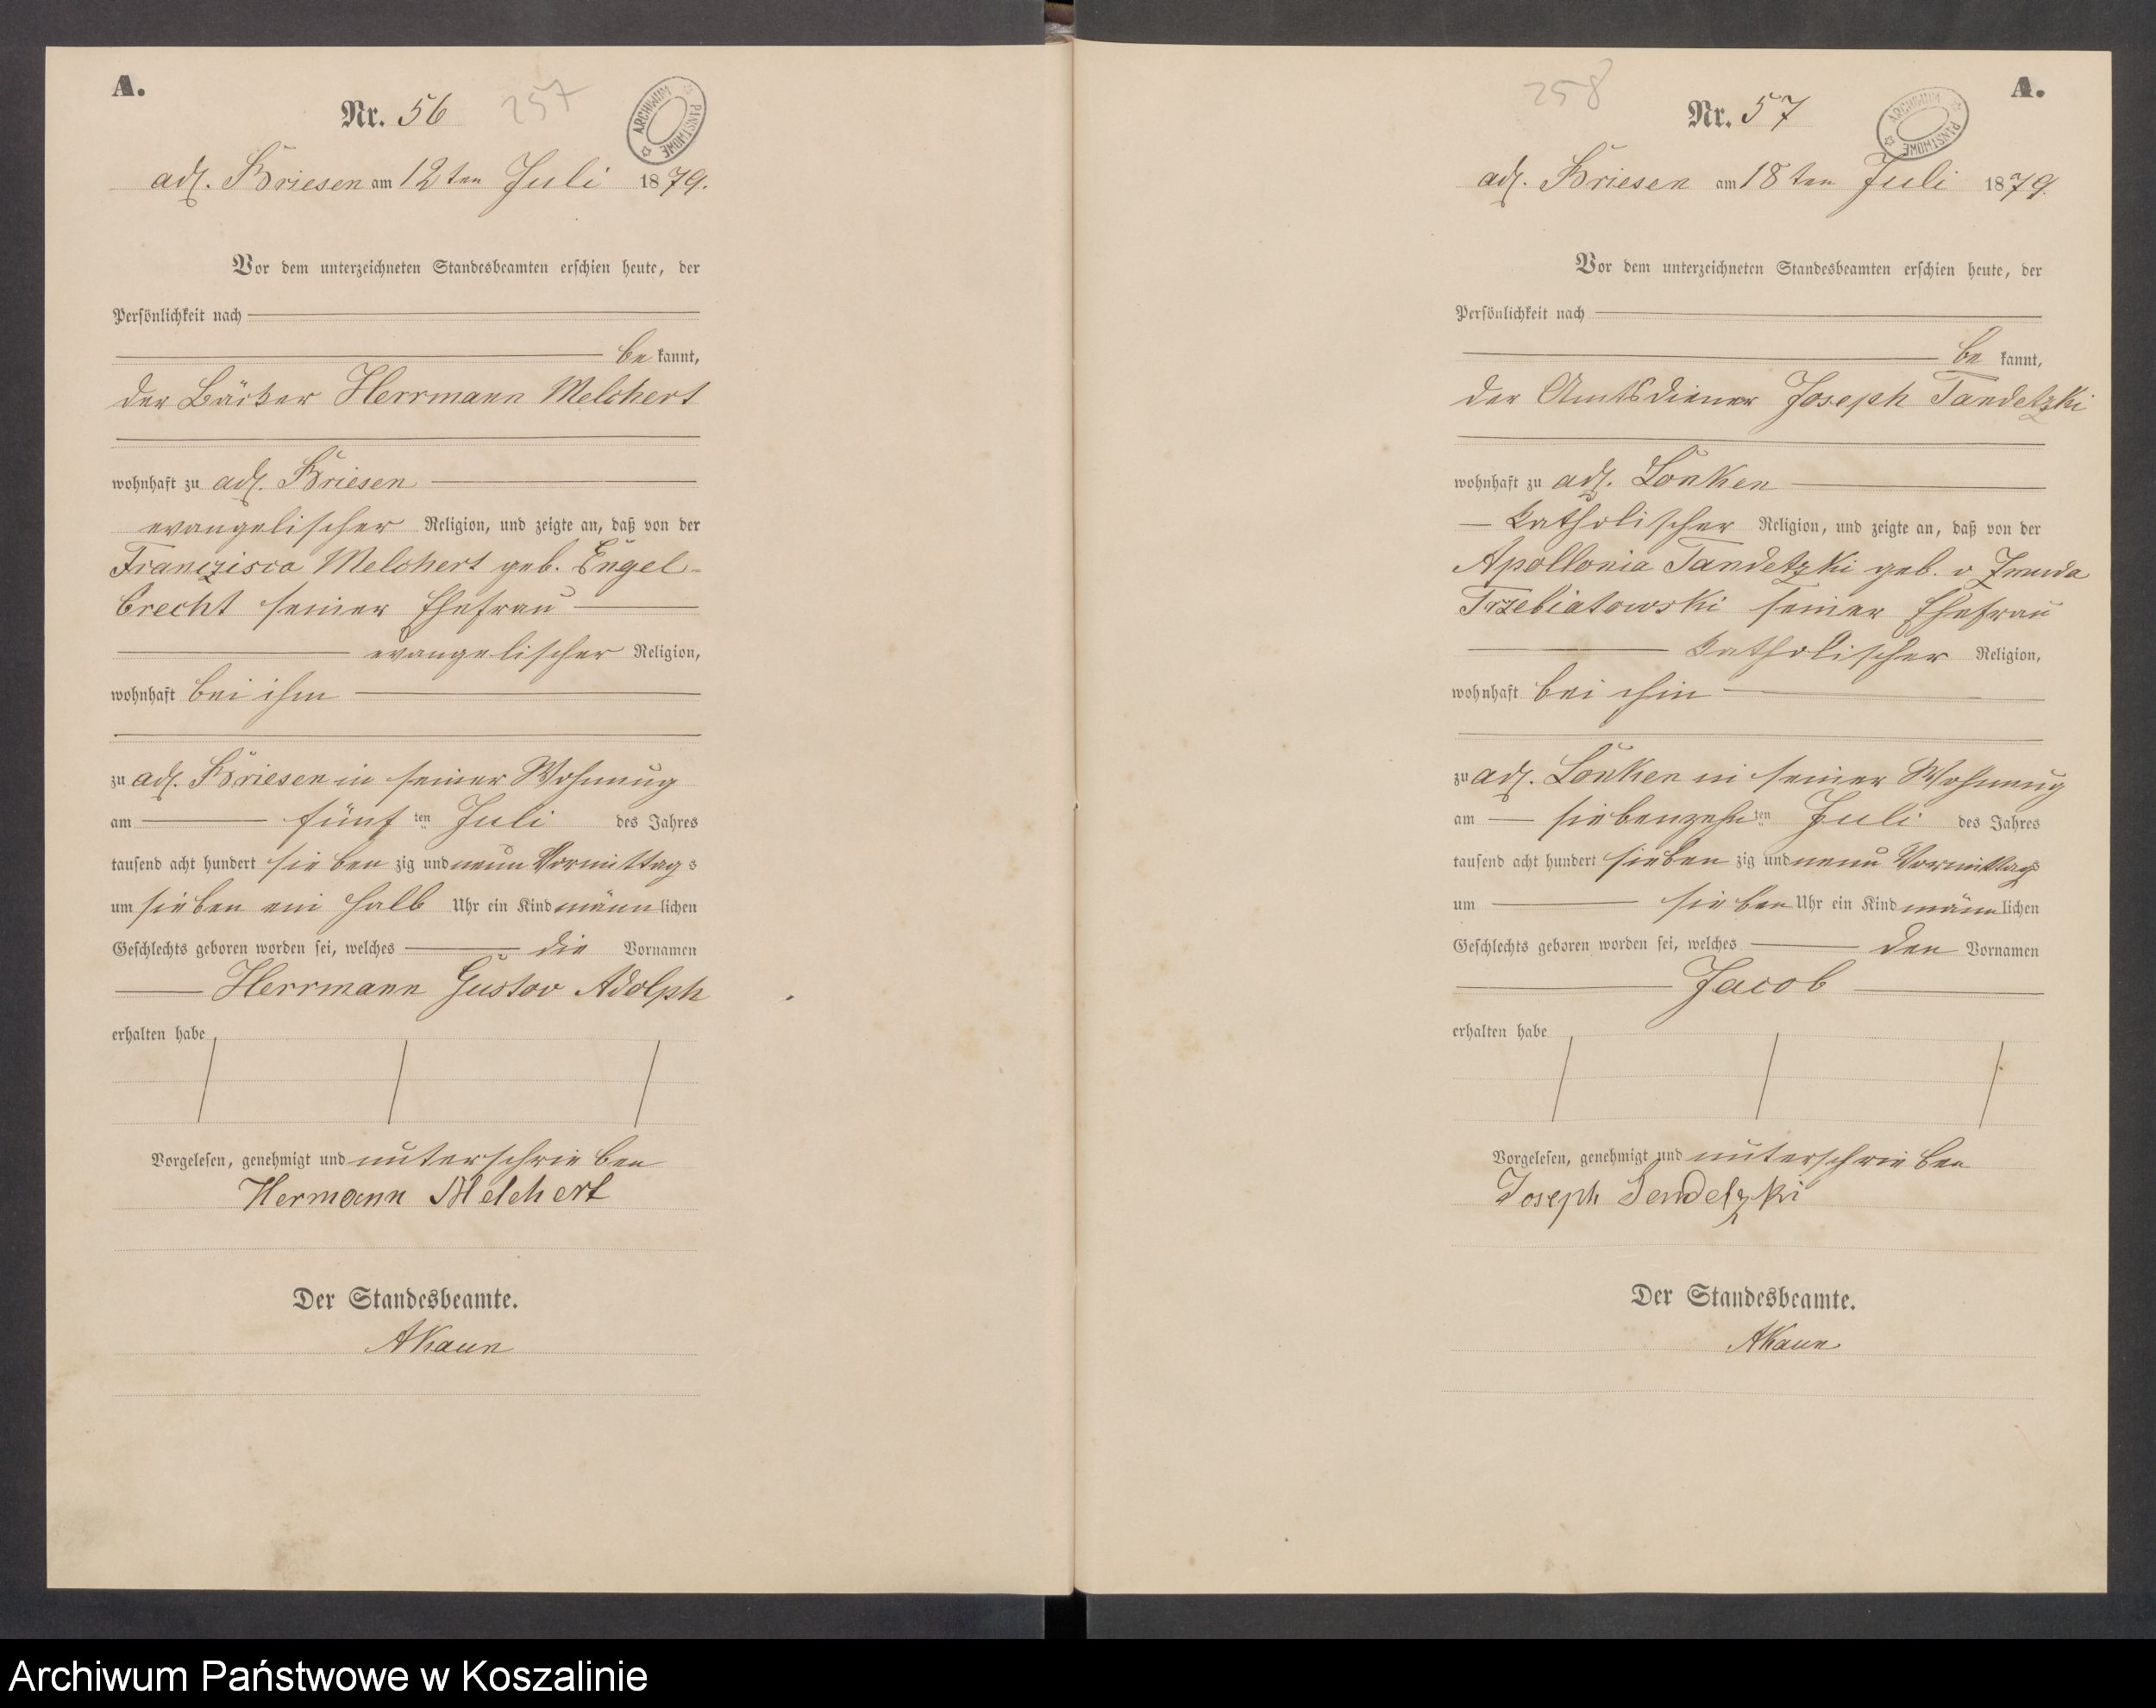 A.
Nr. 56 257
ARCHIWUM PAŃSTWOWE
adl. Briesen am 12ten Juli 1879.
Vor dem unterzeichneten Standesbeamten erschien heute, der
Persönlichkeit nach
be kannt,
der Bäcker Herrmann Melchert
wohnhaft zu adl. Briesen
evangelischer Religion, und zeigte an, daß von der
Franzisca Melchert geb. Engel-
brecht seiner Ehefrau
evangelischer Religion,
wohnhaft bei ihm
zu adl. Briesen in seiner Wohnung
am fünf ten Juli des Jahres
tausend acht hundert sieben zig und neun Vormittag s
um sieben ein halb Uhr ein Kind männ lichen
Geschlechts geboren worden sei, welches die Vornamen
Herrmann Gustav Adolph
erhalten habe
Vorgelesen, genehmigt und unterschrieben
Hermann Melchert
Der Standesbeamte.
AKaun
A.
258
Nr. 57
ARCHIWUM PAŃSTWOWE
adl. Briesen am 18ten Juli 1879.
Vor dem unterzeichneten Standesbeamten erschien heute, der
Persönlichkeit nach
be kannt,
der Amtsdiener Joseph Tandetzki
wohnhaft zu adl. Lonken
katholischer Religion, und zeigte an, daß von der
Apollonia Tandetzki geb. v Zmuda
Trzebiatowski seiner Ehefrau
katholischer Religion,
wohnhaft bei ihm
zu adl. Lonken in seiner Wohnung
am siebenzehn ten Juli des Jahres
tausend acht hundert sieben zig und neun Vormittag s
um sieben Uhr ein Kind männ lichen
Geschlechts geboren worden sei, welches den Vornamen
Jacob
erhalten habe
Vorgelesen, genehmigt und unterschrieben
Joseph Sendetzki
Der Standesbeamte.
AKaun
Archiwum Państwowe w Koszalinie